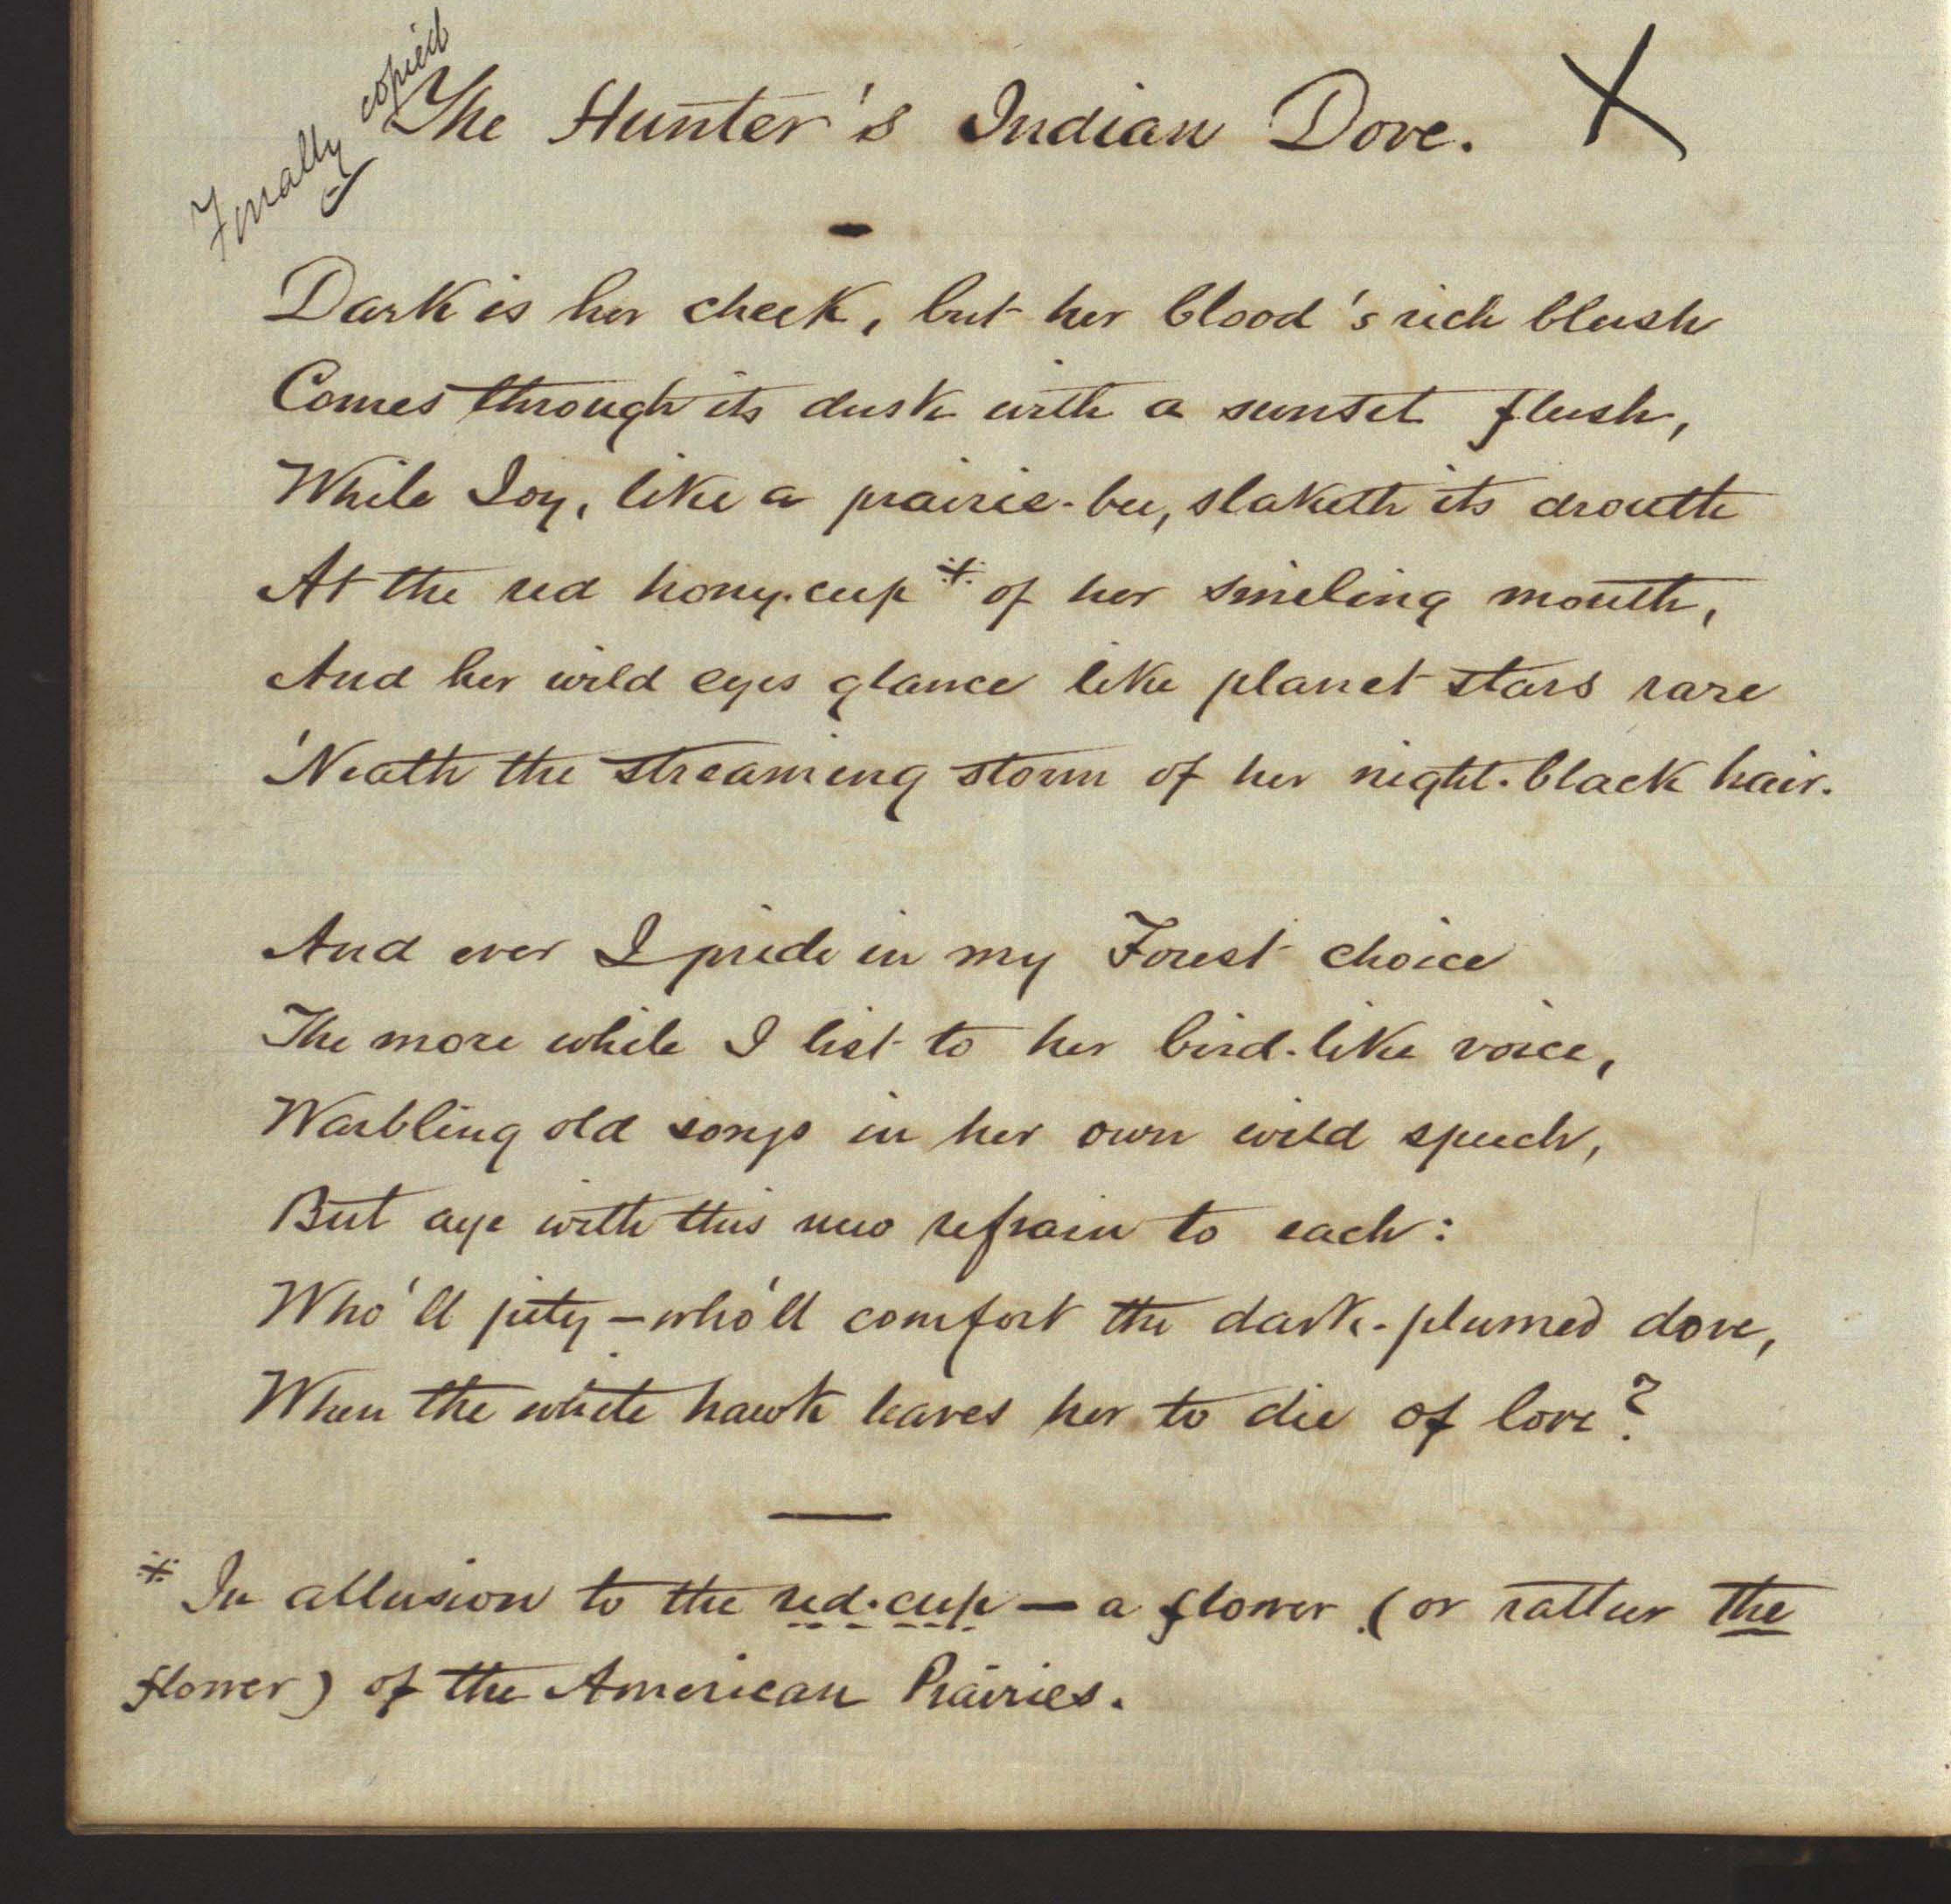 Finally copied
The Hunter's Indian Dove. X
Dark is her cheek, but her blood's rich blush
Comes through its dusk with a sunset flush,
While Joy, like a prairie-bee, slaketh its drouth
At the red hony-cup* of her smiling mouth,
And her wild eyes glance like planet stars rare
'Neath the streaming storm of her night-black hair.
And ever I pride in my Forest choice
The more while I list to her bird-like voice,
Warbling old songs in her own wild speech,
But aye with this new refrain to each:
Who'll pity—who'll comfort the dark-plumed dove,
When the white hawk leaves her to die of love?
* In allusion to the red-cup — a flower (or rather the
flower) of the American Prairies.